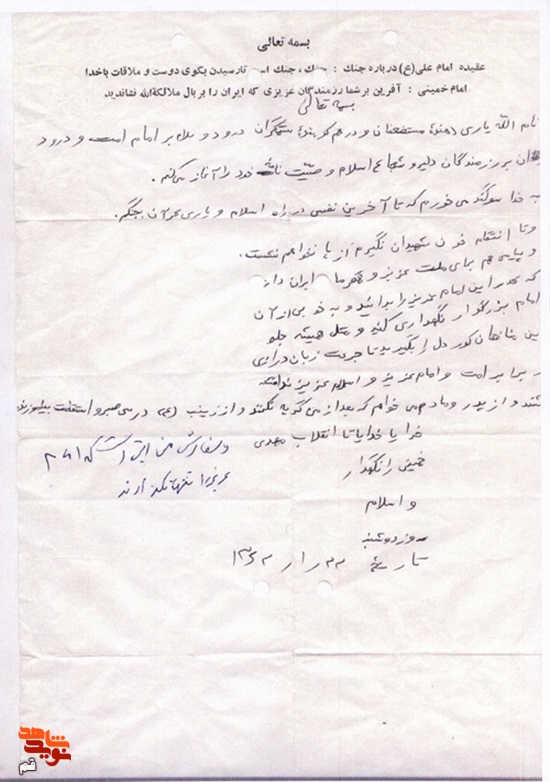 بسمه تعالی
عقیده امام علی (ع) درباره جنگ : جنگ ، جنگ است تا رسیدن بکوی دوست و ملاقات با خدا
امام خمینی : آفرین بر شما رزمندگان عزیزی که ایران را بر بال ملائکةالله نشاندید
بسمه تعالی
نام الله یاری دهندهٔ مستضعفان و در هم کوبندهٔ ستمگران درود و سلام بر امام امت و درود
بر رزمندگان دلیر و شجاع اسلام وصیت نامه خود را آغاز می‌کنم .
به خدا سوگند می خورم که تا آخرین نفس در راه اسلام و یاری قرآن بجنگم .
و تا انتقام خون شهیدان نگیرم از پا نخواهم نشست .
و پیامی هم برای ملت عزیز و قهرمان ایران دارم
که قدر این امام عزیز را بدانید و به خوبی از آن
امام بزرگوار نگهداری کنید و مثل همیشه جلو
این منافقان کور دل را بگیرید تا جرئت زبان درازی
در برابر امت و امام عزیز و اسلام عزیز نداشته
و از پدر و مادرم می خواهم که بعد از من گریه نکنند و از زینب (ع) درس صبر و استقامت بیاموزند
خدایا خدایا تا انقلاب مهدی
خمینی را نگهدار
والسلام
روز دوشنبه
تاریخ ۲۲ ر ۱۳۶۲
و سفارش من این است که امام
عزیز را تنها نگذارند
نوید شاهد
قم